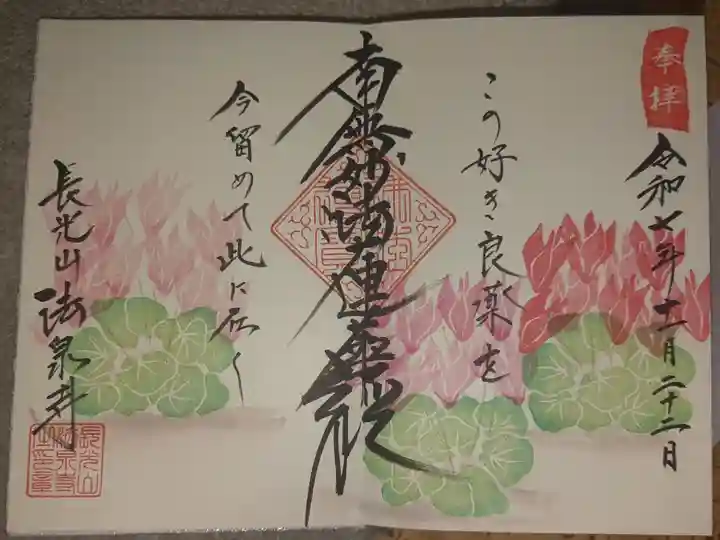 奉拝
令和七年十一月二十二日
この好き良薬を
南無妙法蓮華経
今留めて此に在く
長光山法泉寺
長光山
法泉寺